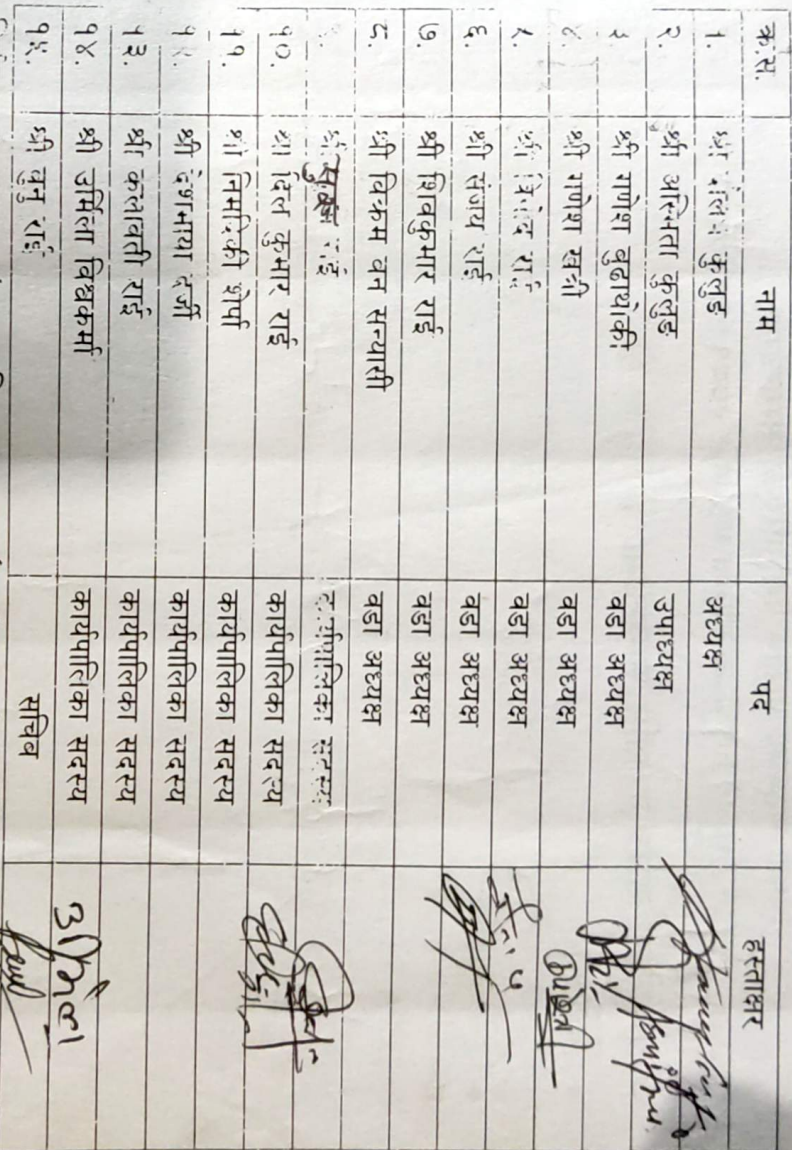 क्र.स. नाम पद हस्ताक्षर
१. श्री कुलुङ अध्यक्ष
२. श्री अस्मिता कुलुङ उपाध्यक्ष
३ श्री गणेश बुढाथोकी वडा अध्यक्ष
४. श्री गणेश खत्री वडा अध्यक्ष
५. श्री राई वडा अध्यक्ष
६. श्री संजय राई वडा अध्यक्ष
७. श्री शिवकुमार राई वडा अध्यक्ष
८. श्री विक्रम वन सन्यासी वडा अध्यक्ष
श्री राई कार्यपालिका सदस्य
१०. श्री दिल कुमार राई कार्यपालिका सदस्य
११. श्री निमादिकी शेर्पा कार्यपालिका सदस्य
१२. श्री देशमाया दर्जी कार्यपालिका सदस्य
१३. श्री कलावती राई कार्यपालिका सदस्य
१४. श्री उर्मिला विश्वकर्मा कार्यपालिका सदस्य उर्मिला
१५. श्री वुनु राई सचिव